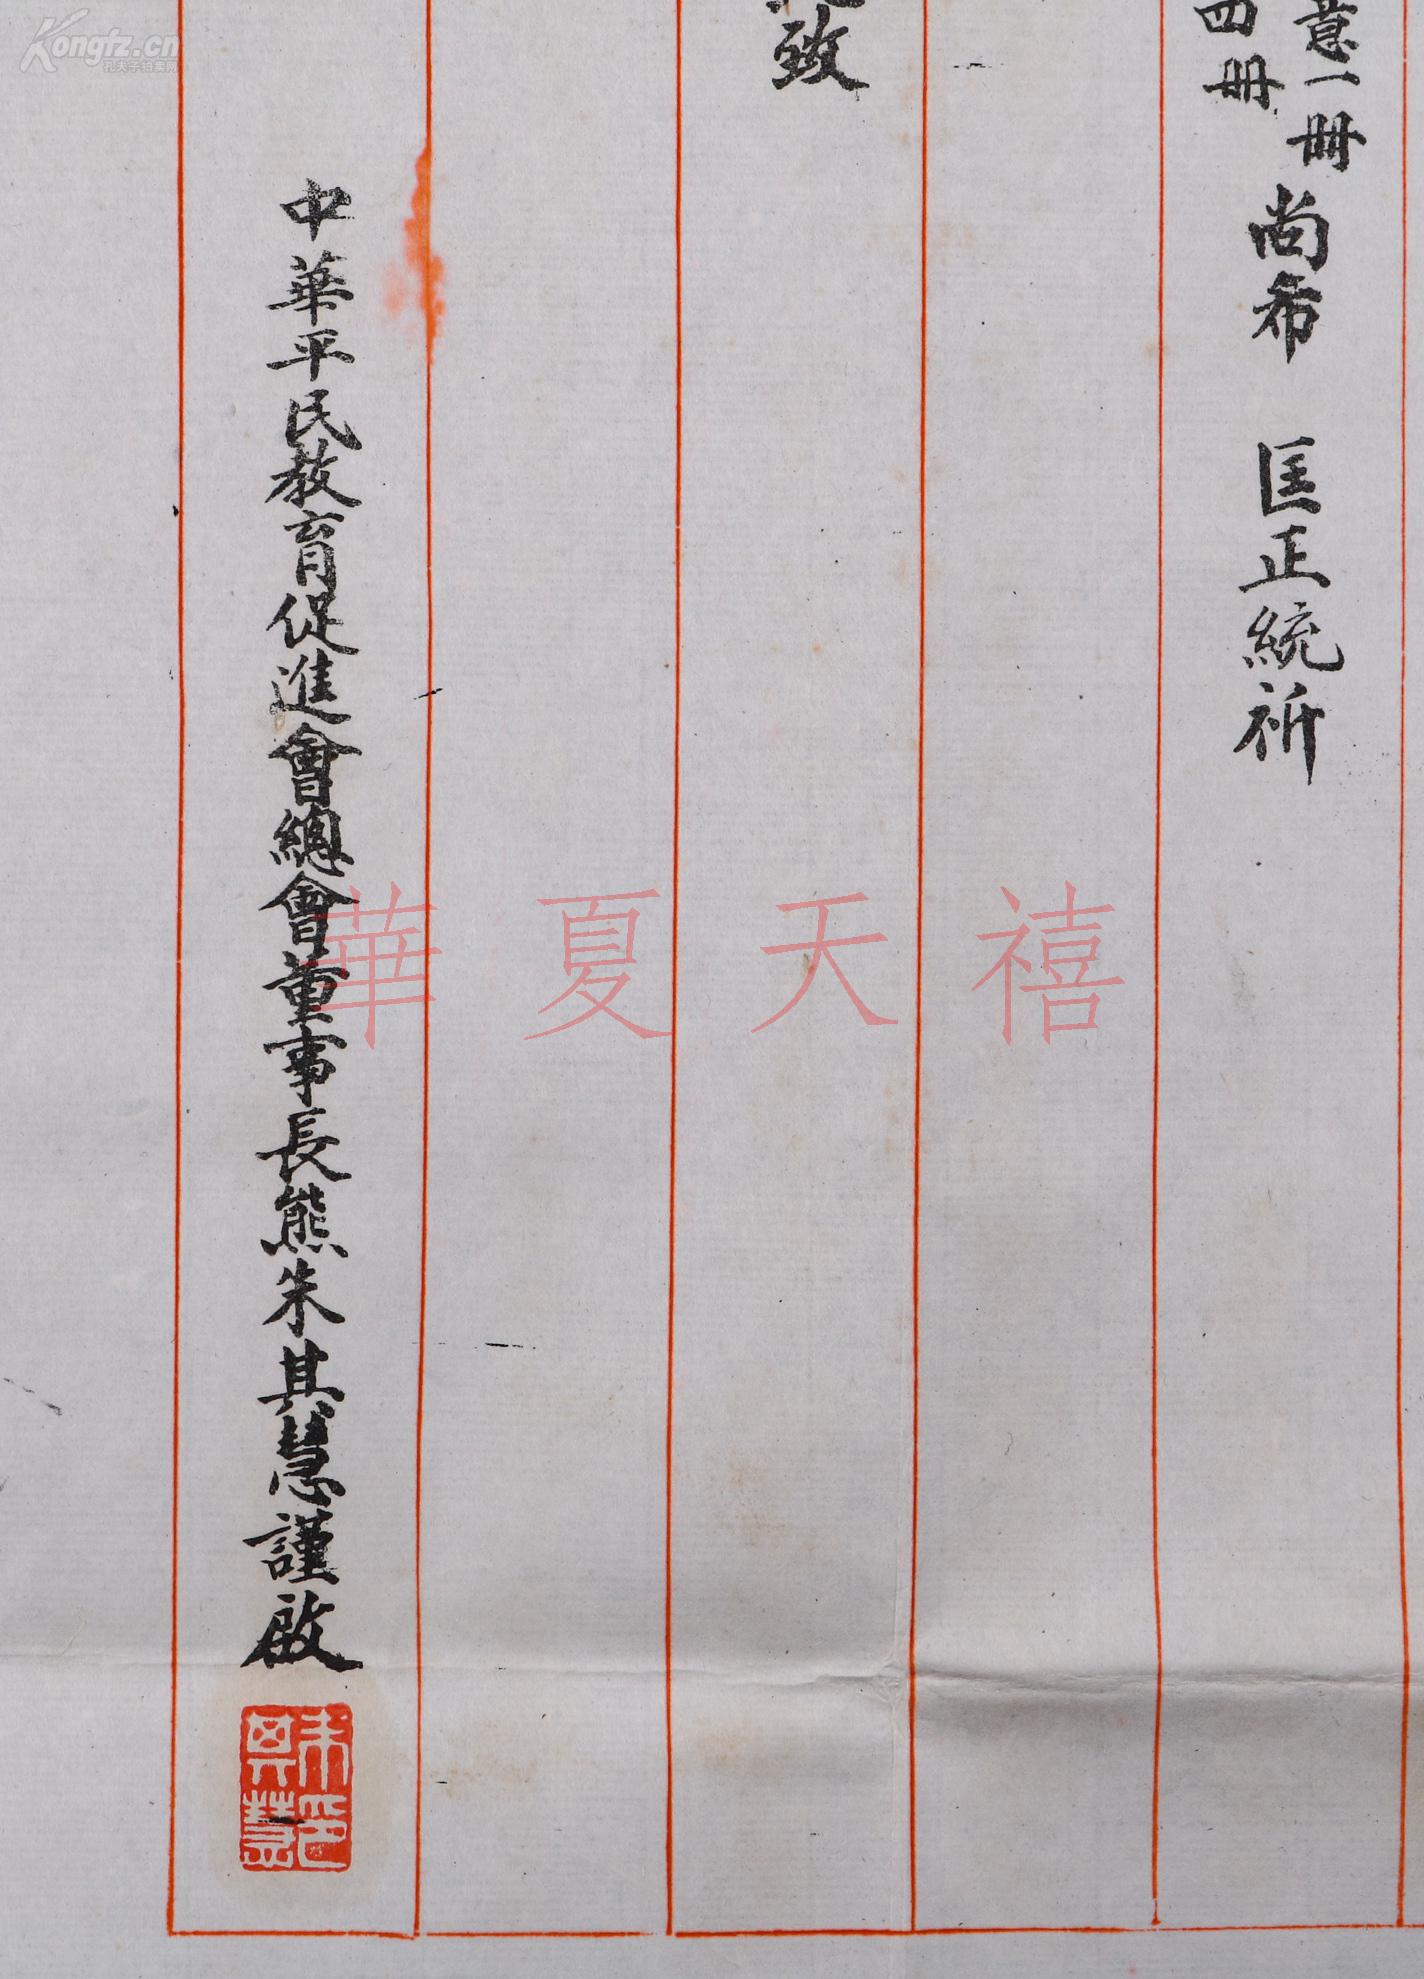 意一册
四册
尚希 匡正統祈
致
中華平民教育促進會總會董事長熊朱其慧謹啟
朱其慧印
華夏天禧
Kongfz.cn
孔夫子拍卖网